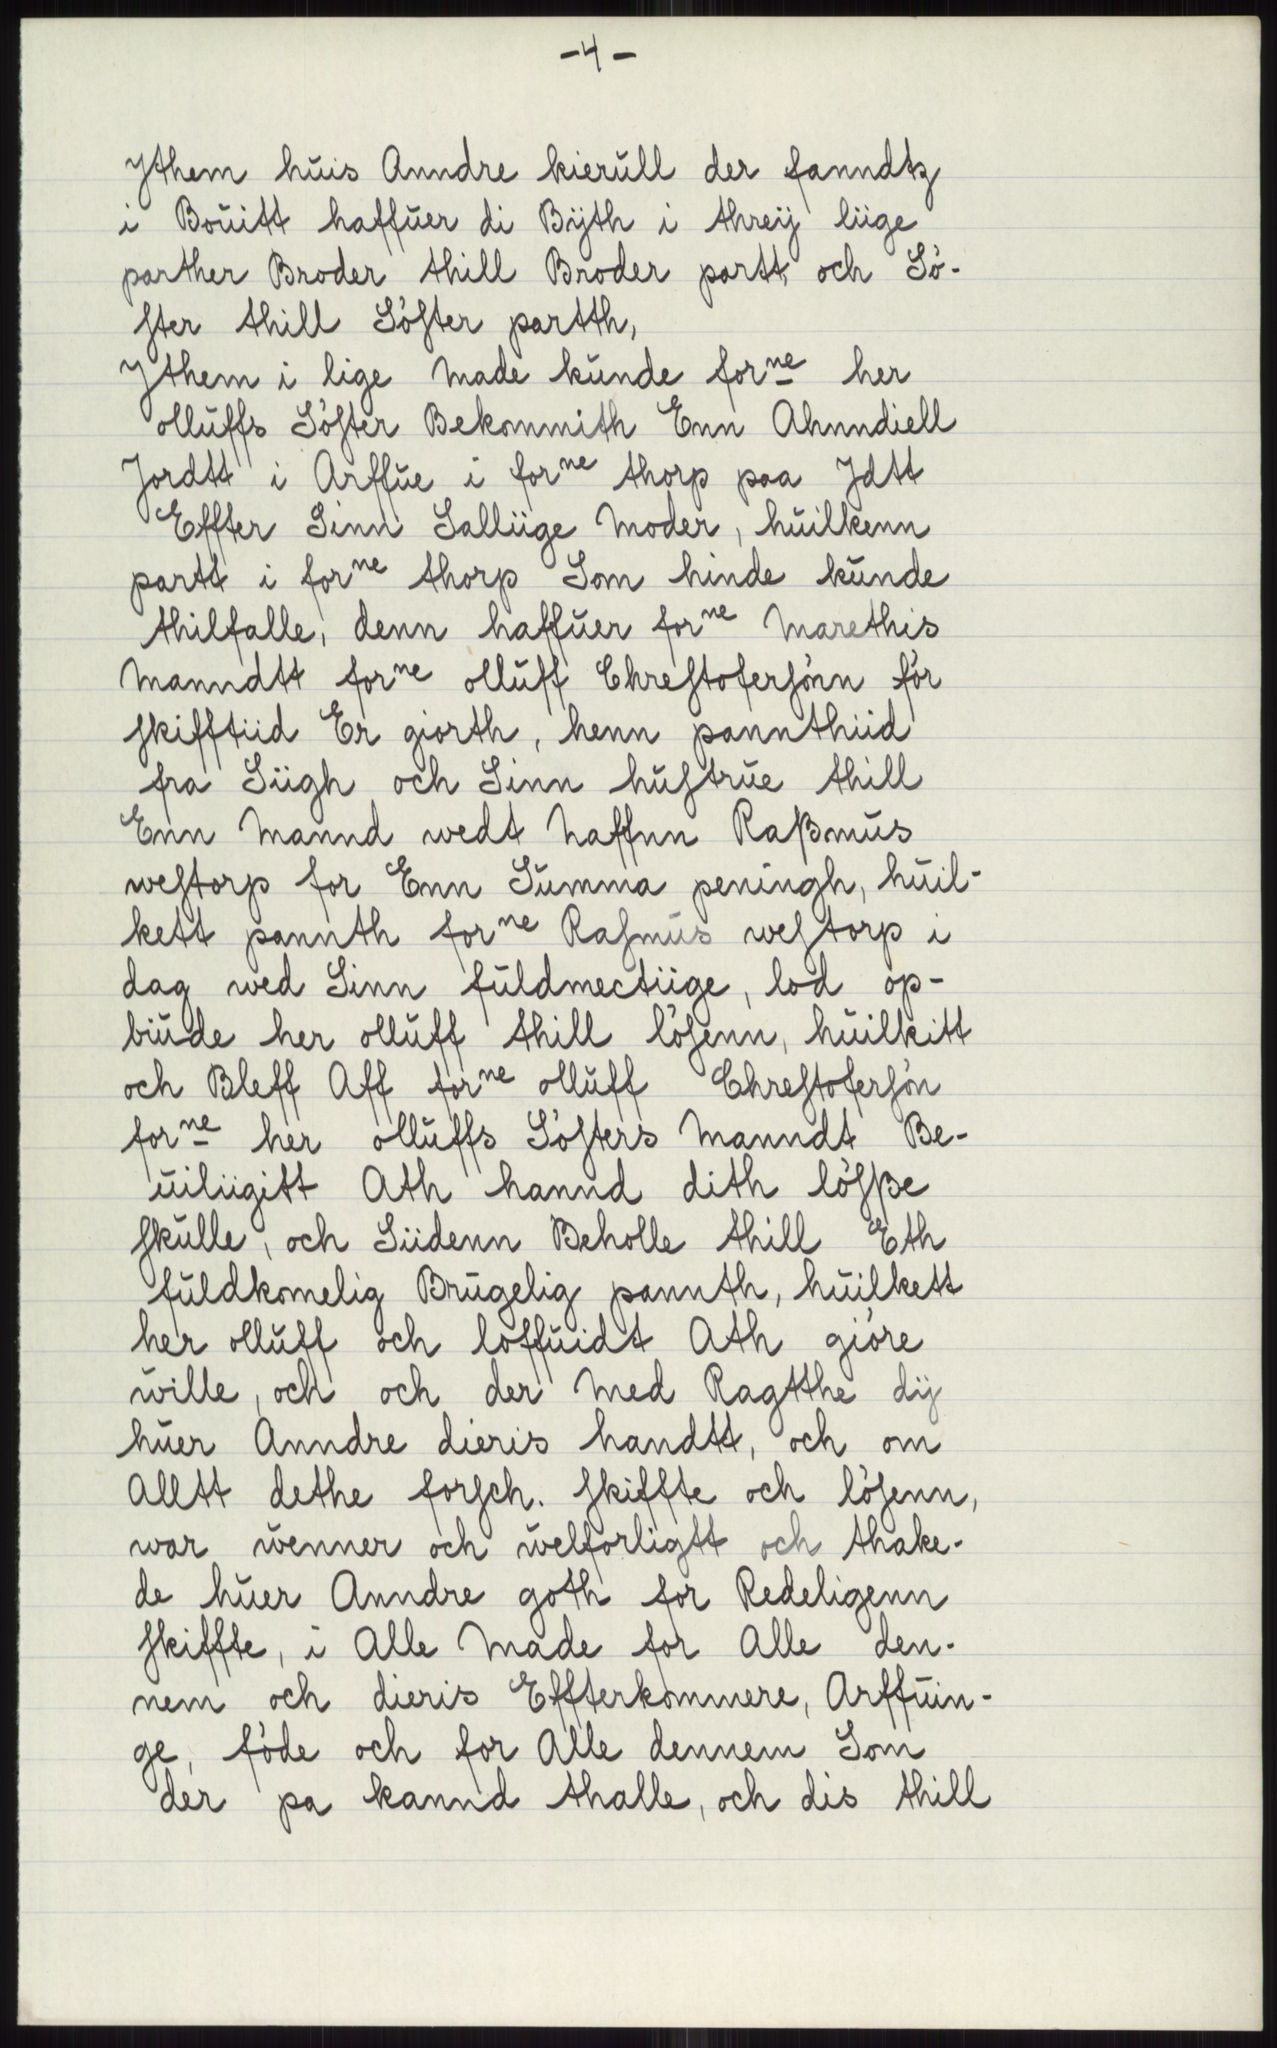 -4-
Jthem huis Anndre kierull der fanndtz
i Bouitt haffuer di Bÿth i threij liige
parther Broder thill Broder partt, och Sö-
ster thill Söster partth,
Jthem i lige Made kunde forne her
olluffs Söster Bekommith Enn Ahnndiell
Jordtt i Arffue i forne thorp paa Jdtt
Effter Sinn Salliige Moder, huilkenn
partt i forne thorp Som hinde kunde
thilfalle, denn haffuer forne Marethis
Manndtt forne olluff Chrestofersönn för
skifftiid Er giorth, henn pannthiid
fra Siigh och Sinn hustrue thill
Enn Mannd wedt Naffnn Raßmus
westorp for Enn Summa peningh, huil-
kett pannth forne Rasmus westorp i
dag wed Sinn fuldmectiige, lod op-
biude her olluff thill lösenn, huilkitt
och Bleff Aff forne olluff Chrestofersön
forne her olluffs Sösters Manndt Be-
uiliigitt Ath hannd dith lösße
skulle, och Siidenn Beholle thill Eth
fuldkomelig Brugelig pannth, huilkett
her olluff och loffuidt Ath giöre
wille, och och der Med Ragtthe dij
huer Anndre dieris handtt, och om
Alltt dethe forsch. skiffte och lösenn,
war wenner och welforligtt och thake-
de huer Anndre goth for Redeligenn
skiffte, i Alle Made for Alle den-
nem och dieris Effterkommere, Arffuin-
ge, föde och for Alle dennem Som
der pa kannd thalle, och dis thill